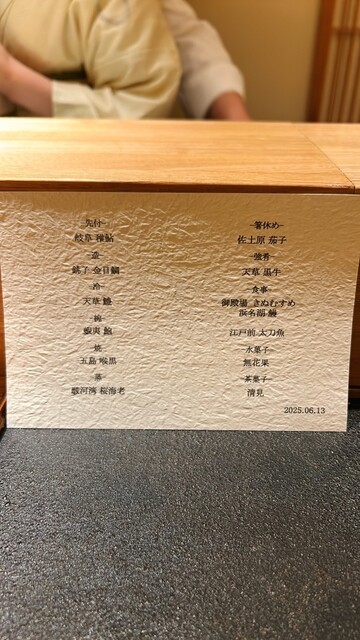 -先付-
岐阜 稚鮎
-造-
銚子 金目鯛
-冷-
天草 鱧
-椀-
-焼-
五島 喉黒
-蒸-
駿河湾 桜海老
-箸休め-
佐土原 茄子
-強肴-
天草 黒牛
-食事-
御殿場 きぬむすめ
浜名湖 鰻
江戸前 太刀魚
-水菓子-
無花果
-茶菓子-
清見
2025.06.13